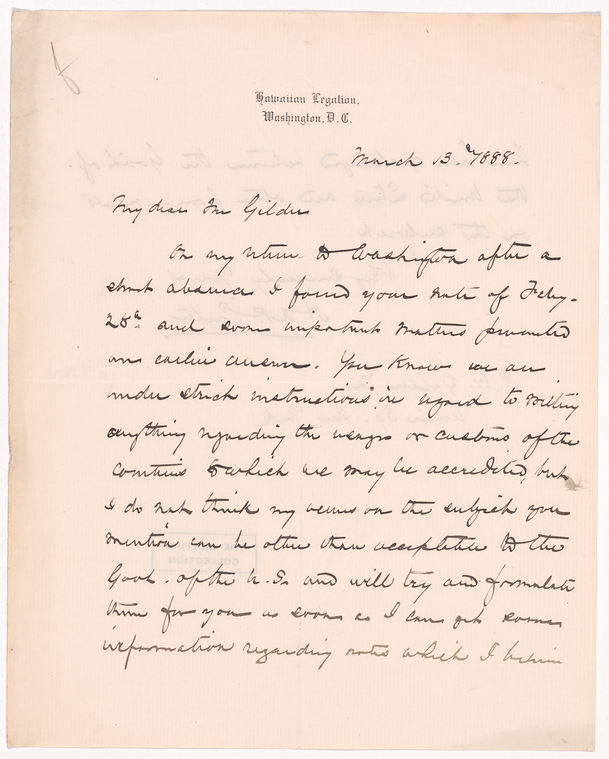 Hawaiian Legation,
Washington, D. C.
March 13th 1888.
My dear Mr Gilder
On my return to Washington after a
short absence I found your note of Feby.
28th and some important matters prevented
an earlier answer. You know we are
under strict instructions in regard to writing
anything regarding the usages or customs of the
countries to which we may be accredited, but
I do not think my views on the subject you
mention can be other than acceptable to the
Govt. of the U.S. and will try and formulate
them for you as soon as I can get some
information regarding notes which I